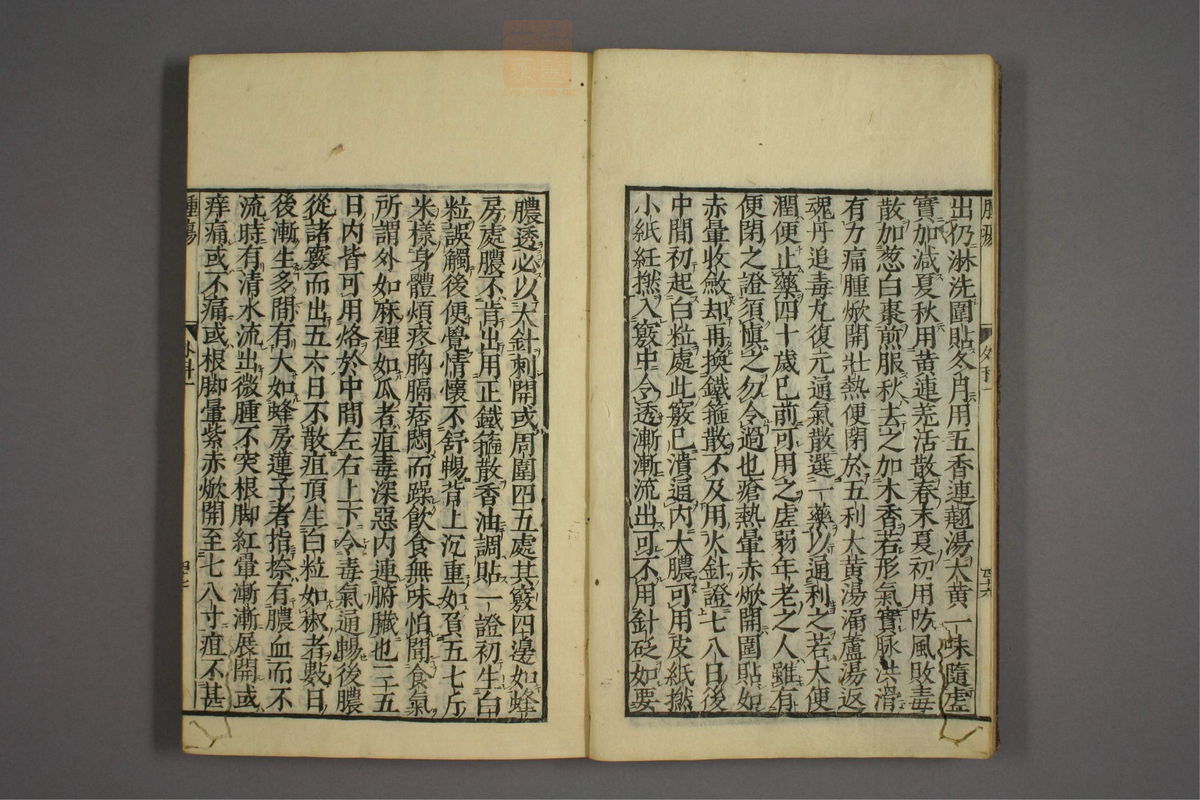 出仍淋洗圍貼冬月用五香連翹湯大黃一味隨虛
實加減夏秋用黃連羌活散春末夏初用防風敗毒
散加葱白棗煎服秋去之加木香若形氣實脉洪滑
有力痛腫焮開壯熱便閉於五利大黃湯漏蘆湯返
魂丹追毒丸復元通氣散選一藥以通利之若大便
潤便止藥四十歲已前可用之虛弱年老之人雖有
便閉之證須愼之勿令過也瘡熱暈赤焮開圍貼如
赤暈收斂却再換鐵箍散不及用火針證七八日後
中間初起白粒處此竅已潰通內大膿可用皮紙撚
小紙紝撚入竅中令透漸漸流出可不用針砭如要
膿透必以大針刺開或周圍四五處其竅四邊如蜂
房處膿不肯出用正鐵箍散香油調貼一證初生白
粒誤觸後便覺情懷不舒暢背上沉重如負五七斤
米樣身體煩疼胸膈痞悶而躁飲食無味怕聞食氣
所謂外如麻裡如瓜者疽毒深惡內連腑臟也三五
日內皆可用烙於中間左右上下令毒氣通暢後膿
從諸竅而出五六日不散疽頂生白粒如椒者數日
後漸生多間有大如蜂房蓮子者指捺有膿血而不
流時有清水流出微腫不突根脚紅暈漸漸展開或
痒痛或不痛或根脚暈紫赤焮開至七八寸疽不甚
腫瘍
外科一
四七